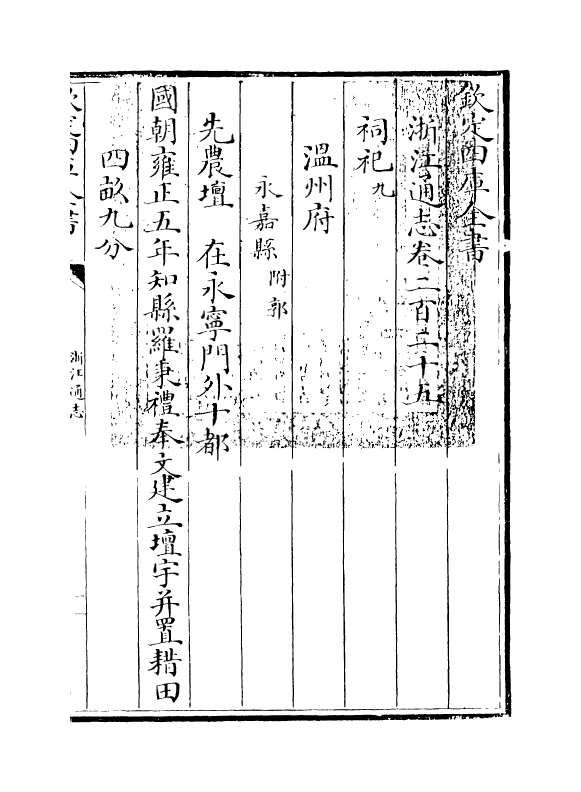 欽定四庫全書
浙江通志卷二百二十五
祠祀九
溫州府
永嘉縣附郭
先農壇　在永寧門外十都
國朝雍正五年知縣羅秉禮奉文建立壇宇并置耤田
四畝九分
欽定四庫全書
浙江通志